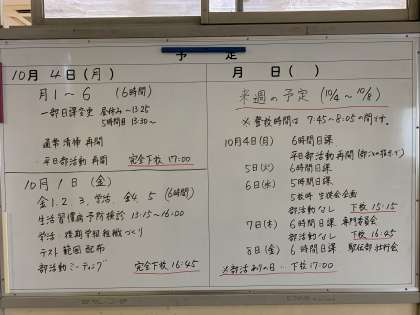 予定
10月 4日(月)
月1～6 (6時間)
一部日課変更 昼休み～13:25
5時間目 13:30～
通常清掃 再開
平日部活動 再開 完全下校 17:00
10月 1日 (金)
金1、2、3、学活、金4、5 (6時間)
生活習慣病予防検診 13:15～16:00
学活:後期学級組織づくり
テスト範囲配布
部活動ミーティング 完全下校 16:45
月 日 ( )
来週の予定 (10/4～10/8)
※登校時間は 7:45～8:05の間です。
10月4日(月) 6時間日課
平日部活動 再開
5日(火) 6時間日課
6日(水) 5時間日課
5校時 生徒会企画
部活動なし 下校 15:15
7日(木) 6時間日課 専門委員会
部活動なし 下校 16:45
8日(金) 6時間日課 駅伝部壮行会
※部活ありの日…下校 17:00